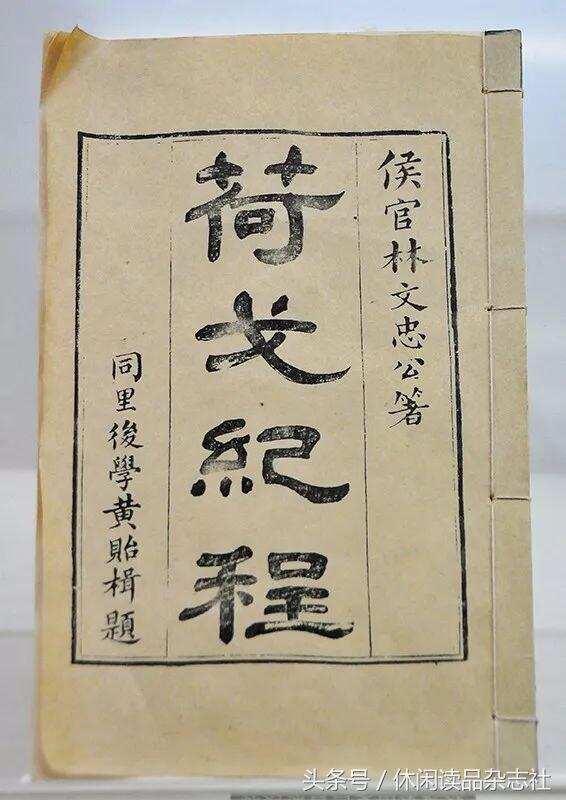 侯官林文忠公箸
荷戈紀程
同里後學黃貽楫題
头条号 / 休闲读品杂志社